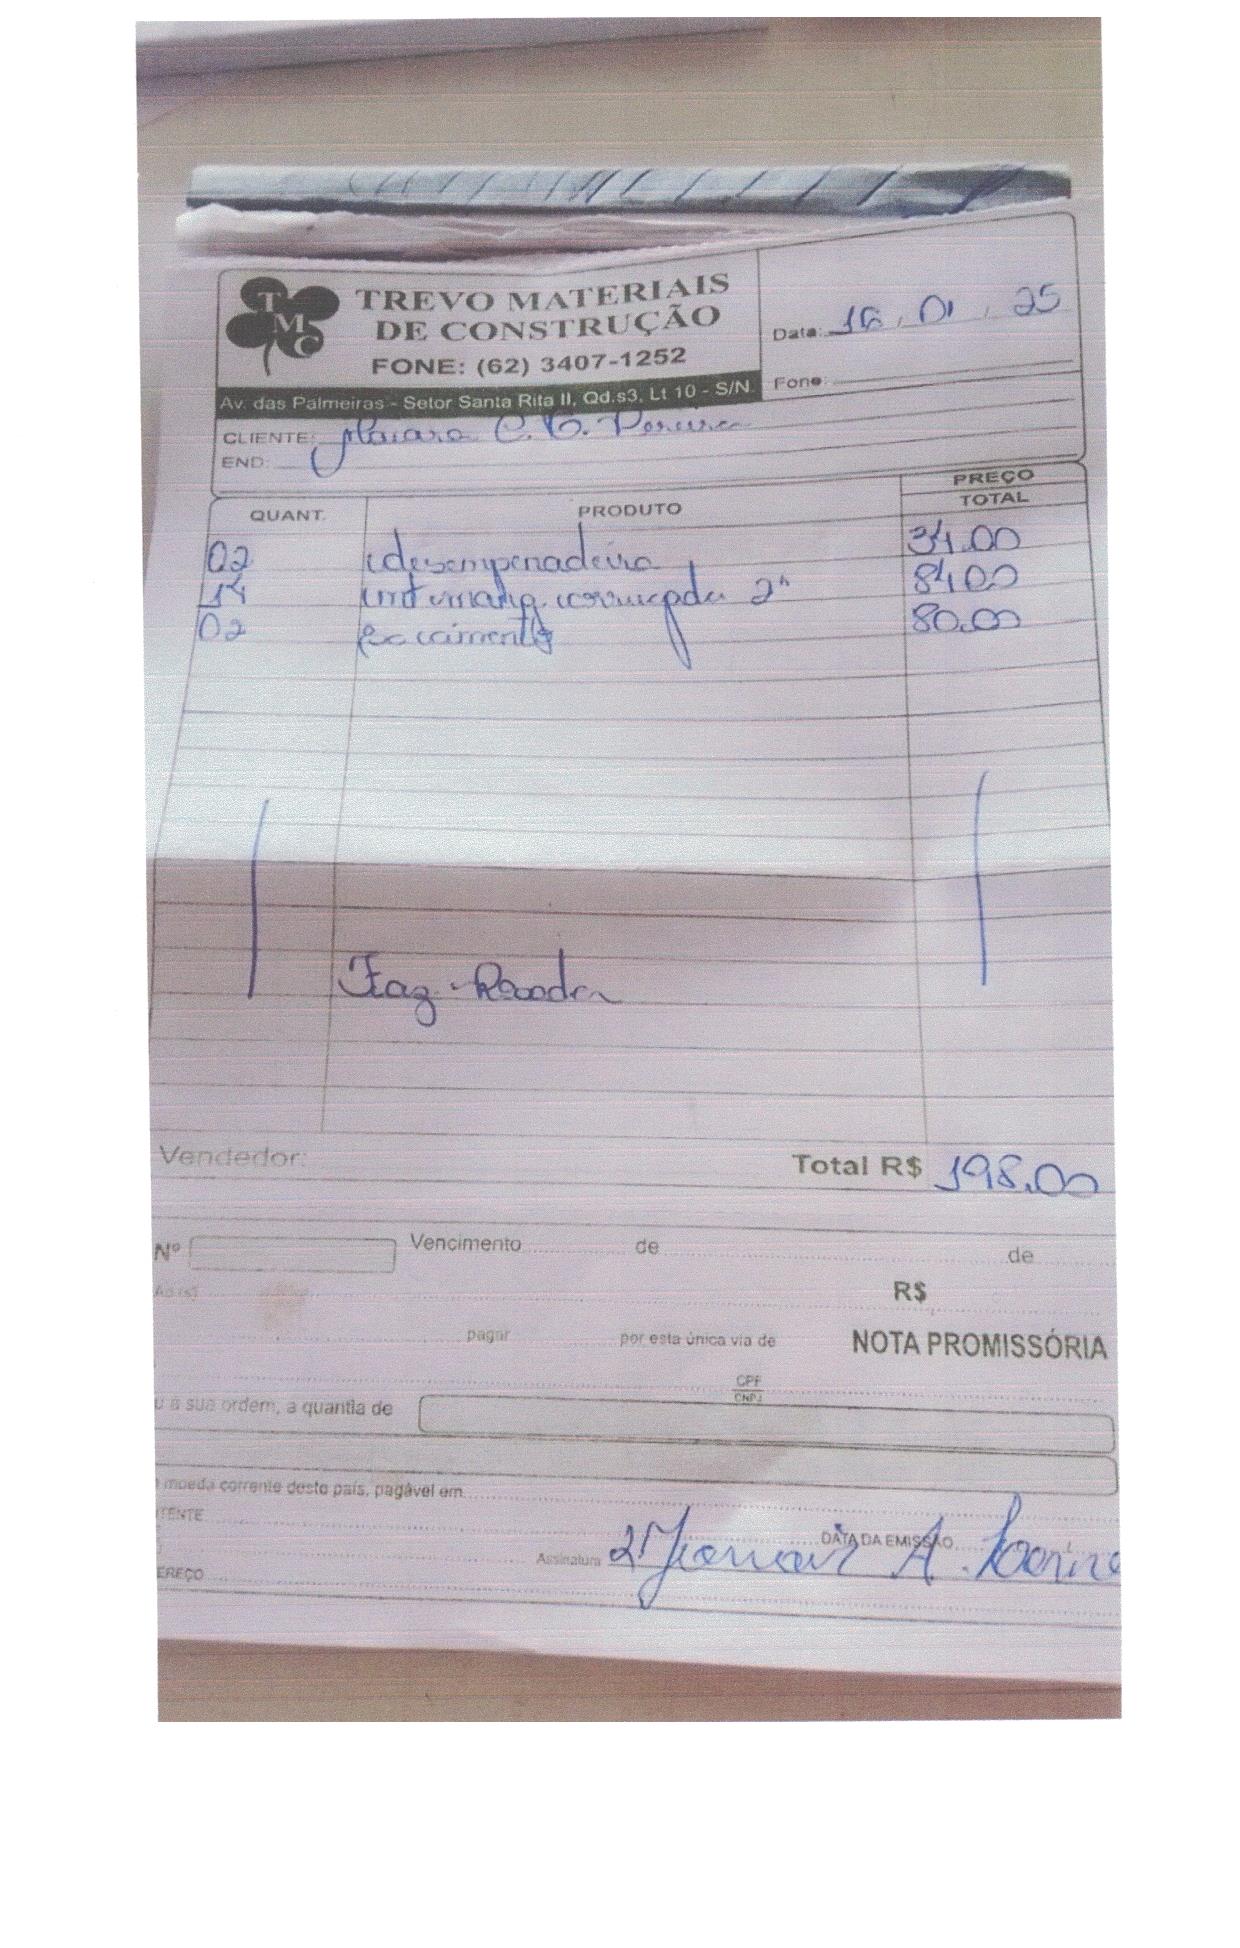 TMC
TREVO MATERIAIS
DE CONSTRUÇÃO
FONE: (62) 3407-1252
Av. das Palmeiras - Setor Santa Rita II, Qd.s3, Lt 10 - S/N.
Data: 16 . 01 . 25
Fone:
CLIENTE: Maiara C. G. Pereira
END:
QUANT. PRODUTO PREÇO TOTAL
02 desempenadeira 34.00
14 corrugada 2" 84.00
02 80.00
Faz.
Vendedor: Total R$ 198.00
Nº Vencimento de de
R$
pagar por esta única via de NOTA PROMISSÓRIA
CPF
CNPJ
u à sua ordem, a quantia de
moeda corrente deste país, pagável em
ITENTE
DATA DA EMISSÃO
Assinatura A.
EREÇO